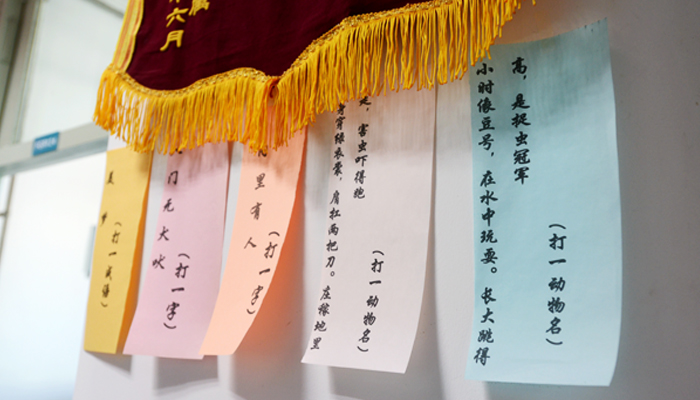 六月
（打一成语）
门无犬吠
（打一字）
里有人
（打一字）
身穿绿衣裳，肩扛两把刀。庄稼地里
走，害虫吓得跑
（打一动物名）
小时像豆号，在水中玩耍。长大跳得
高，是捉虫冠军
（打一动物名）